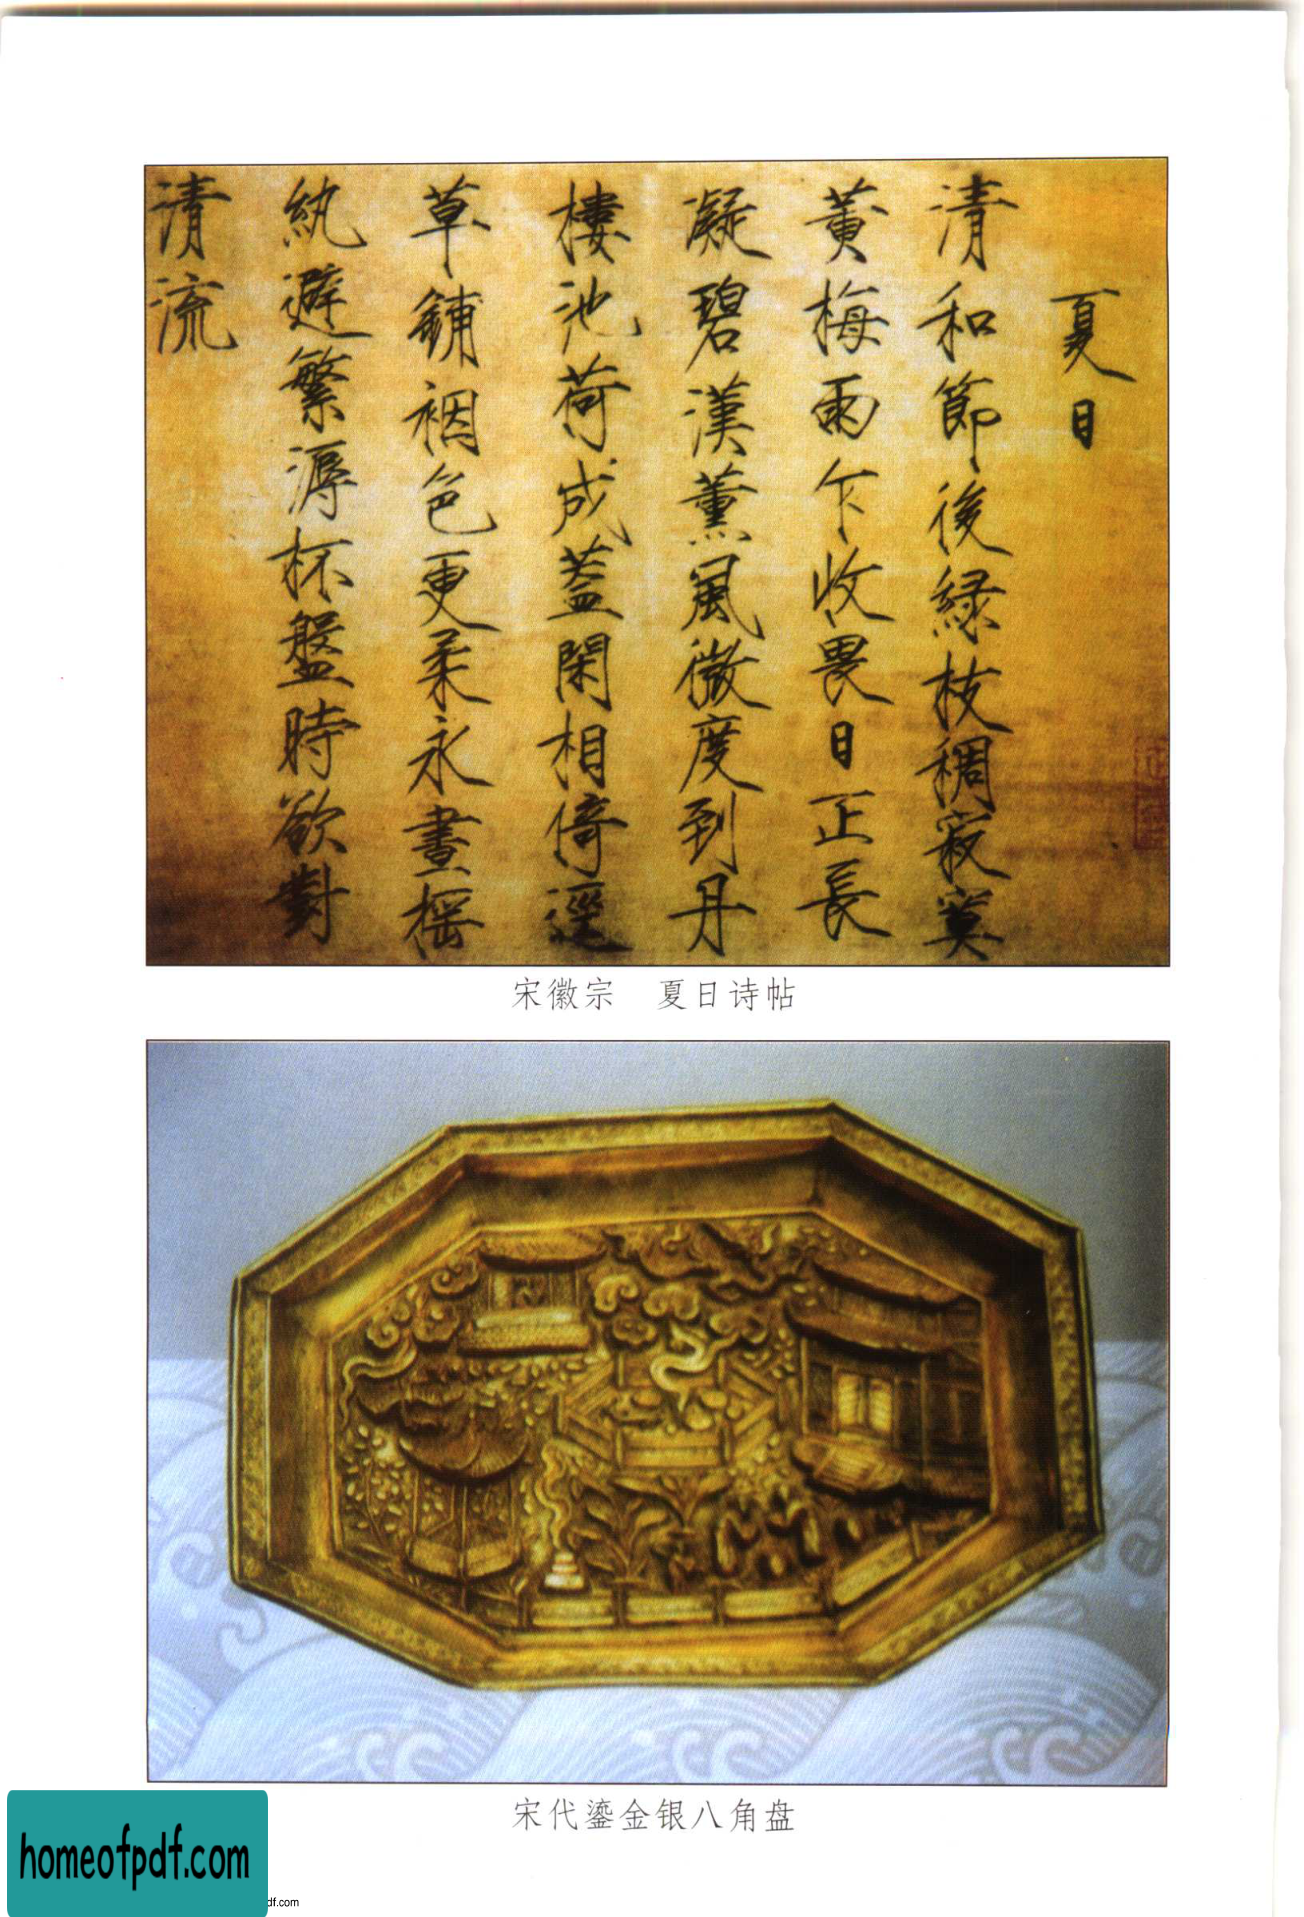 夏日
清和節後綠枝稠寂寞
黄梅雨乍收畏日正長
凝碧漢薰風微度到丹
樓池荷成蓋閑相倚逕
草鋪裀色更柔永晝搖
紈避繁溽杯盤時欲對
清流
宋徽宗　夏日诗帖
宋代鎏金银八角盘
homeofpdf.com
df.com